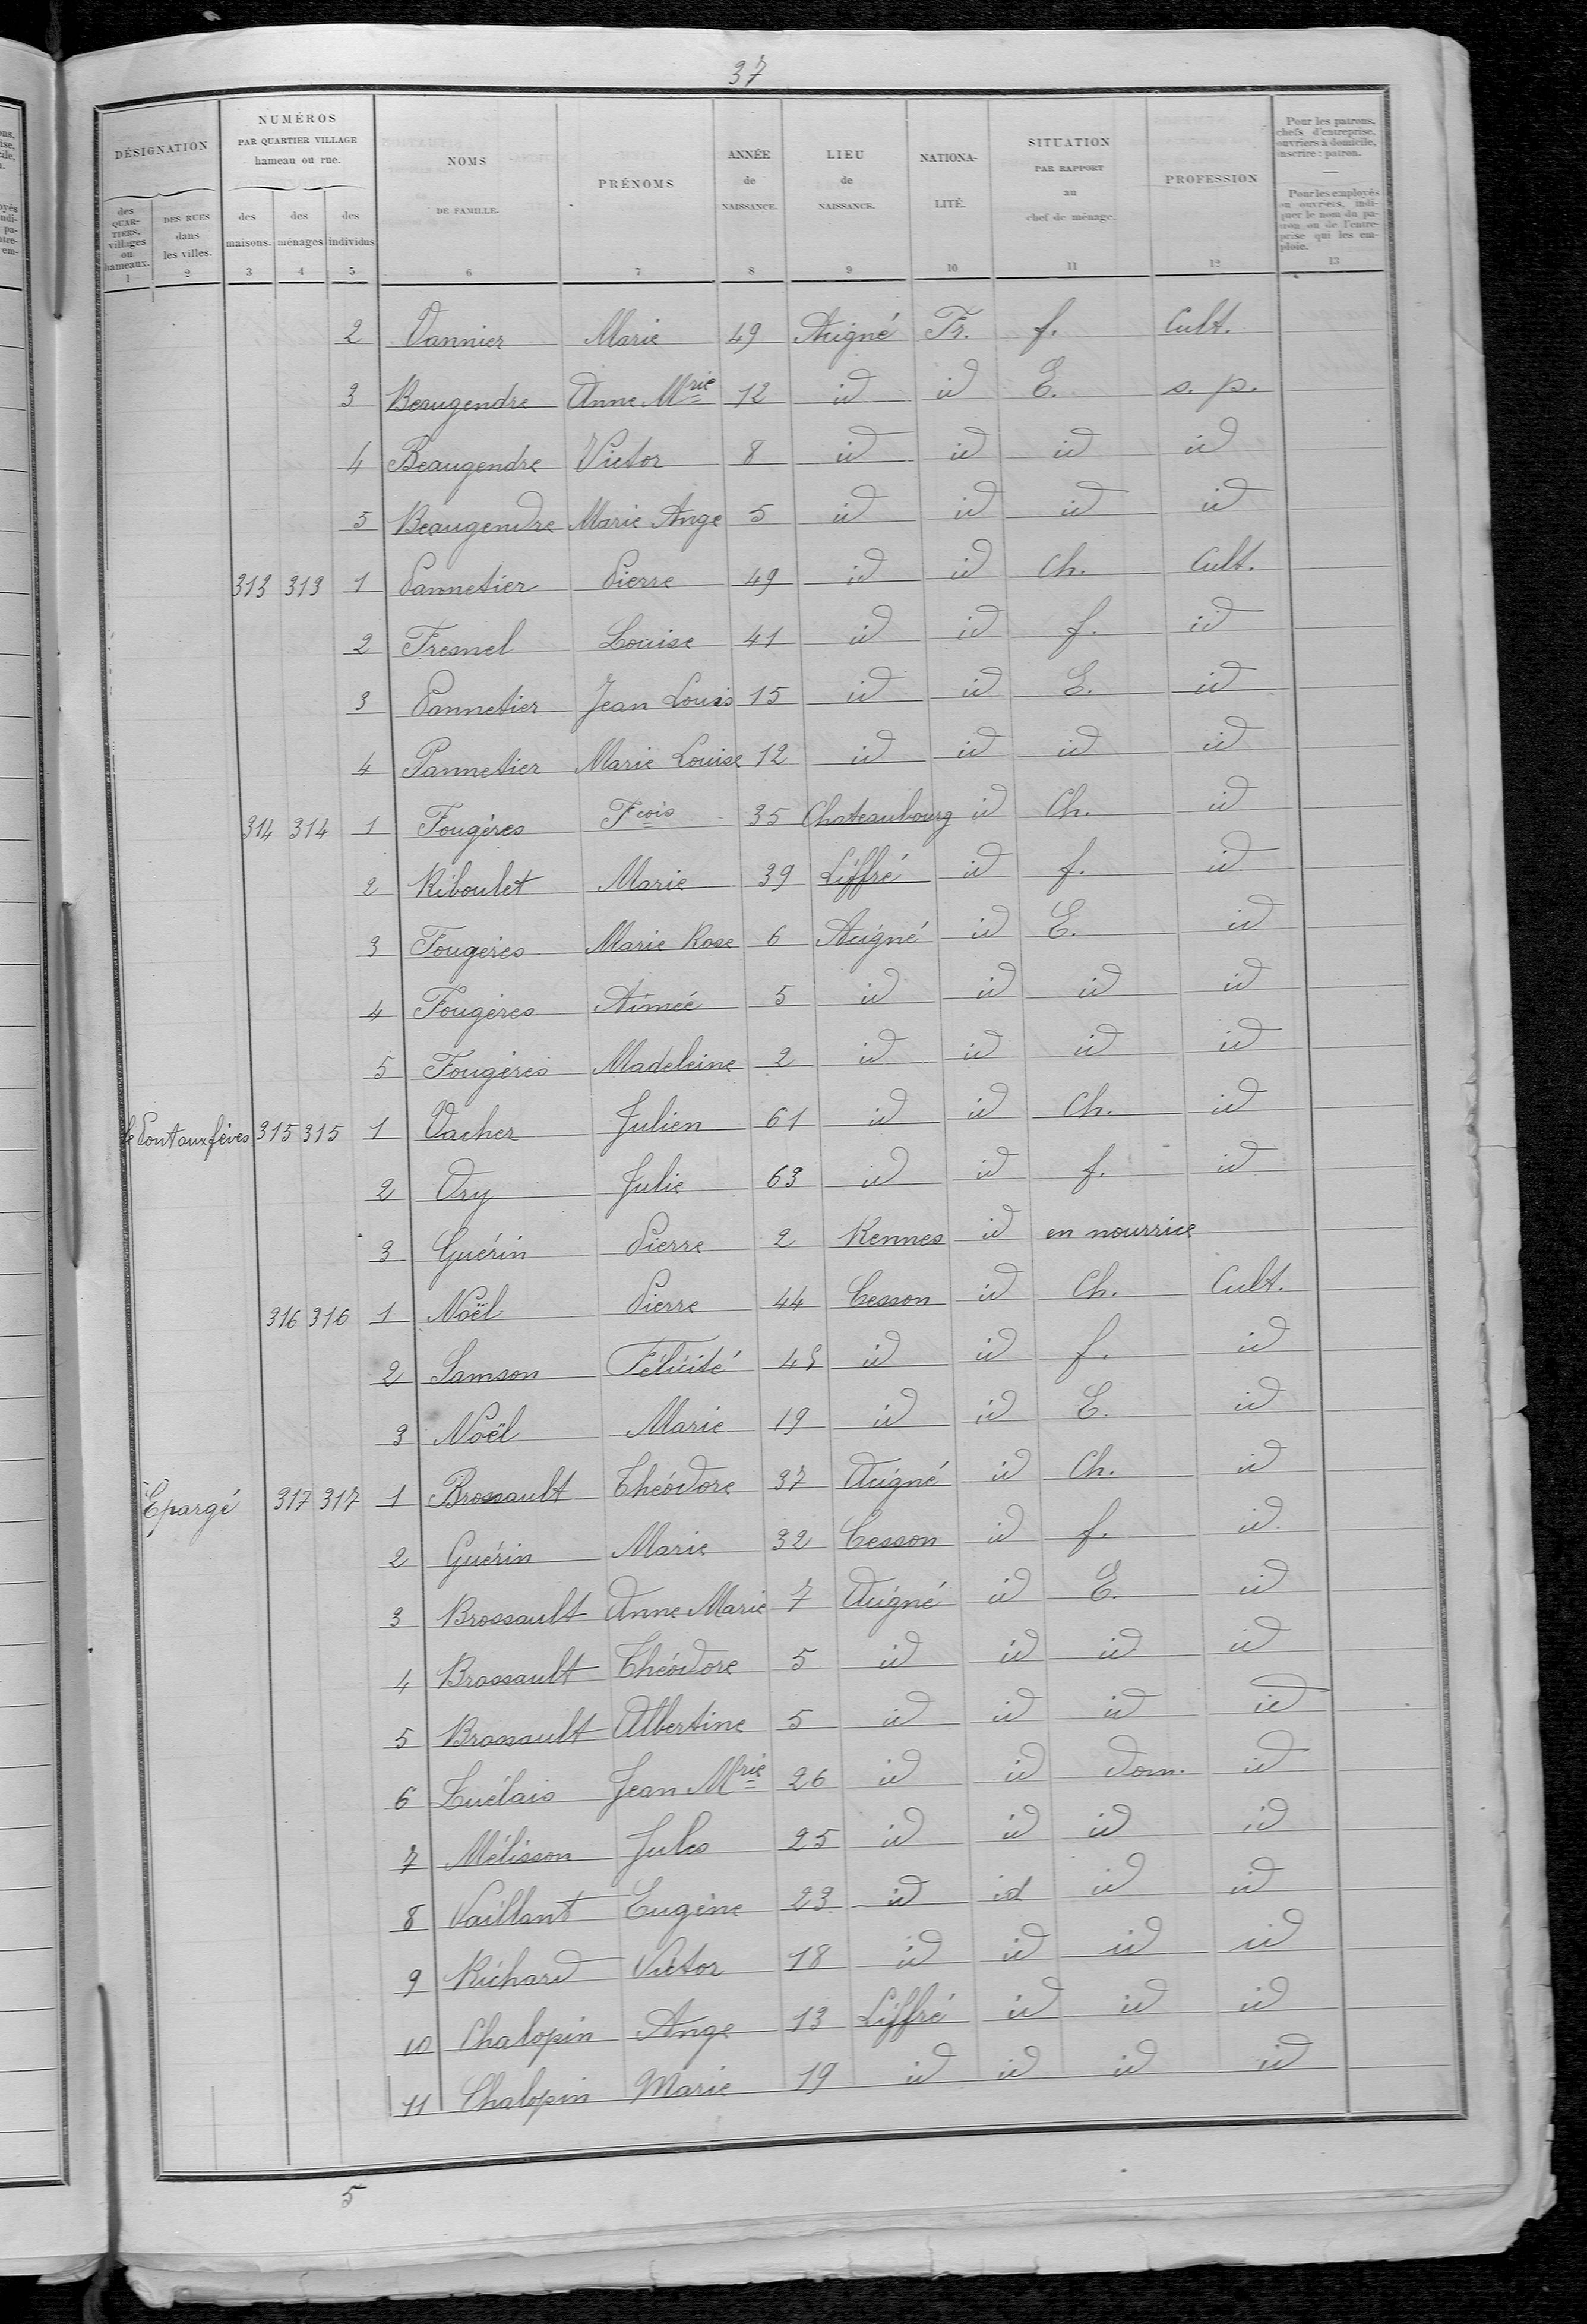 37
DÉSIGNATION
NUMÉROS
PAR QUARTIER VILLAGE
hameau ou rue.
des QUARTIERS, villages ou hameaux. 1
DES RUES dans les villes. 2
des maisons. 3
des ménages 4
des individus 5
NOMS DE FAMILLE. 6
PRÉNOMS 7
ANNÉE de NAISSANCE. 8
LIEU de NAISSANCE. 9
NATIONA-LITÉ. 10
SITUATION PAR RAPPORT au chef de ménage. 11
PROFESSION 12
Pour les patrons, chefs d'entreprise, ouvriers à domicile, inscrire : patron. — Pour les employés ou ouvriers, indiquer le nom du patron ou de l'entreprise qui les emploie. 13
2 Vannier Marie 49 Acigné Fr. f. Cult.
3 Beaugendre Anne Mrie 12 id id E. s. p.
4 Beaugendre Victor 8 id id id id
5 Beaugendre Marie Ange 5 id id id id
313 313 1 Pannetier Pierre 49 id id Ch. Cult.
2 Fresnel Louise 41 id id f. id
3 Pannetier Jean Louis 15 id id E. id
4 Pannetier Marie Louise 12 id id id id
314 314 1 Fougères Fcois 35 Chateaubourg id Ch. id
2 Riboulet Marie 39 Liffré id f. id
3 Fougères Marie Rose 6 Acigné id E. id
4 Fougères Aimée 5 id id id id
5 Fougères Madeleine 2 id id id id
le Pont aux fèves 315 315 1 Vacher Julien 61 id id Ch. id
2 Ory Julie 63 id id f. id
3 Guérin Pierre 2 Rennes id en nourrice
316 316 1 Noël Pierre 44 Cesson id Ch. Cult.
2 Samson Félicité 45 id id f. id
3 Noël Marie 19 id id E. id
Epargé 317 317 1 Brossault Théodore 37 Acigné id Ch. id
2 Guérin Marie 32 Cesson id f. id
3 Brossault Anne Marie 7 Acigné id E. id
4 Brossault Théodore 5 id id id id
5 Brossault Albertine 5 id id id id
6 Luélais Jean Mrie 26 id id dom. id
7 Mélisson Jules 25 id id id id
8 Vaillant Eugène 23 id id id id
9 Richard Victor 18 id id id id
10 Chalopin Ange 13 Liffré id id id
11 Chalopin Marie 19 id id id id
5